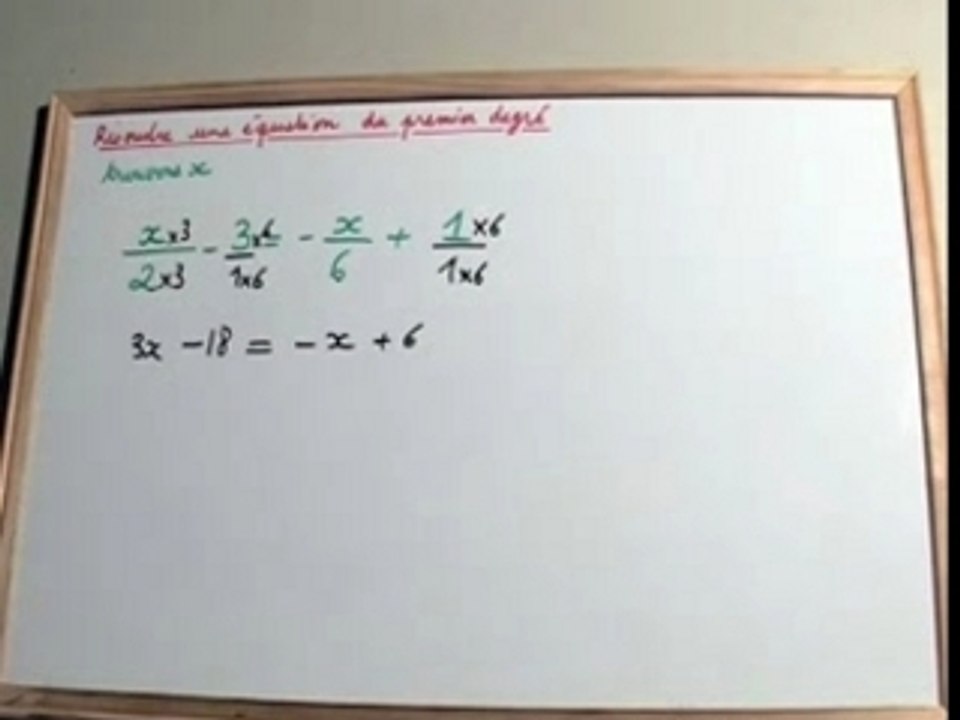 Résoudre une équation du premier degré
Inconnue x
x×3/2×3 - 3×6/1×6 - x/6 + 1×6/1×6
3x - 18 = - x + 6